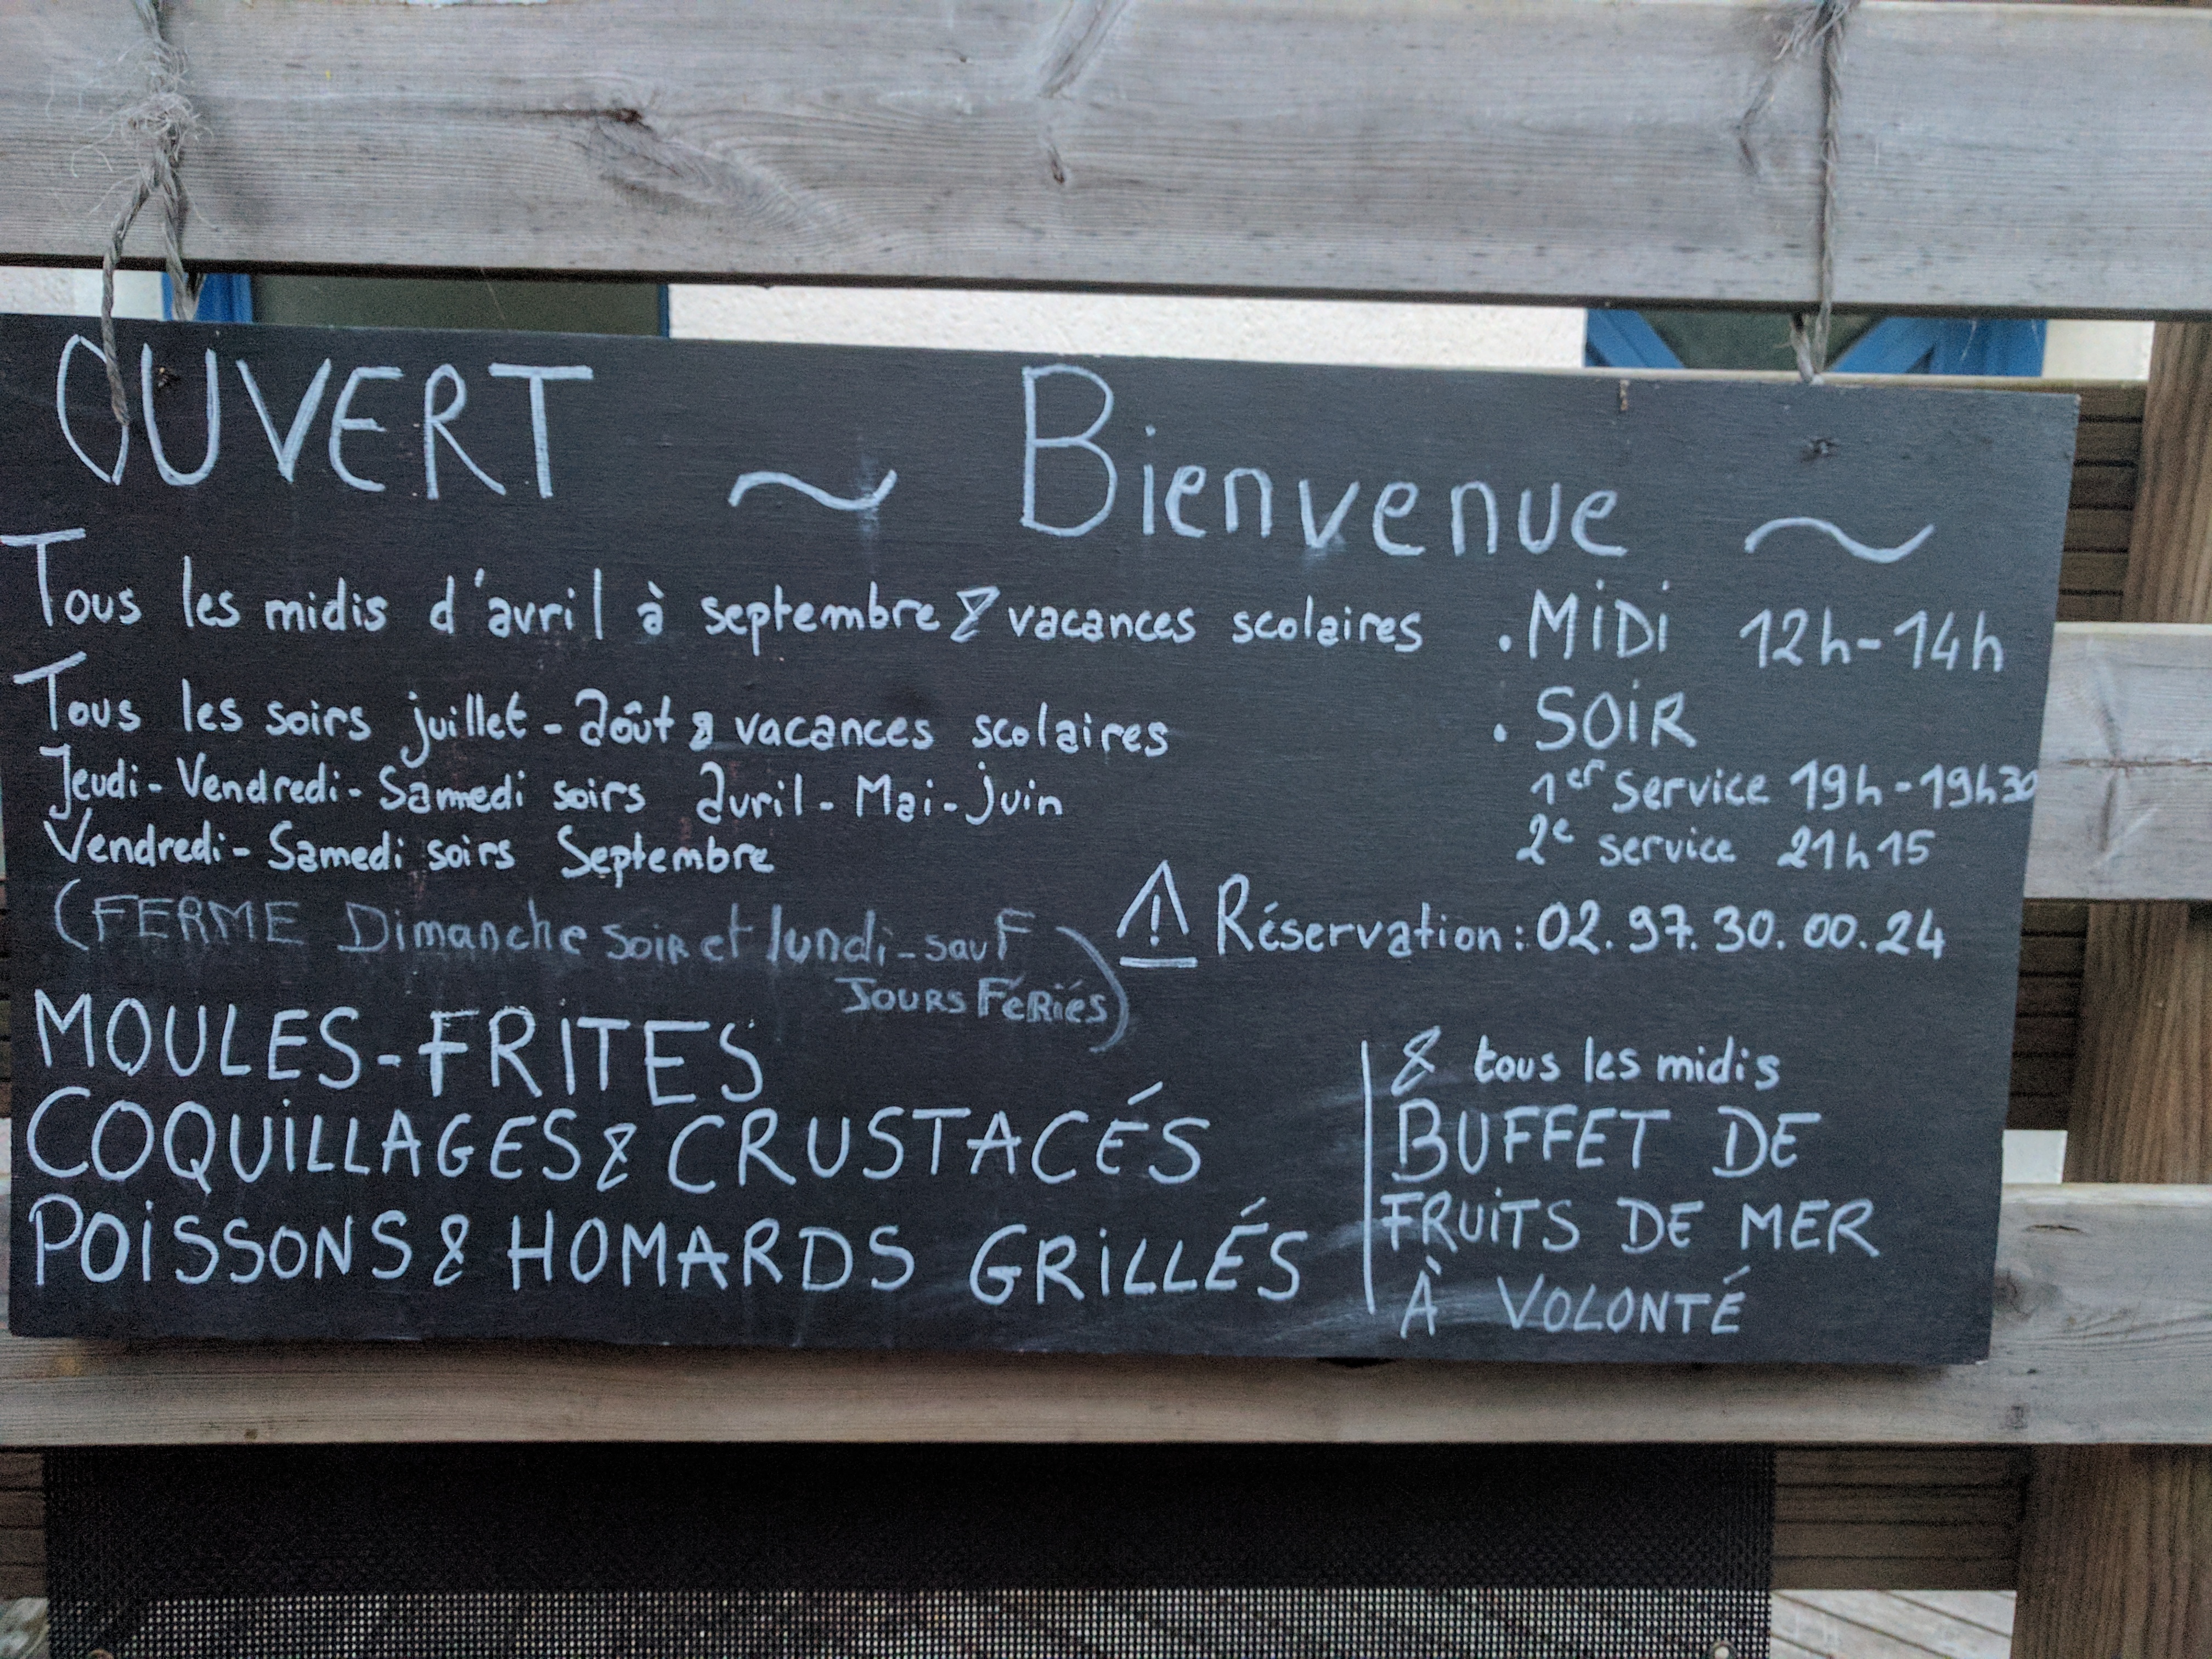 OUVERT ~ Bienvenue ~
Tous les midis d'avril à septembre & vacances scolaires
Tous les soirs juillet - août & vacances scolaires
Jeudi - Vendredi - Samedi soirs avril - Mai - juin
Vendredi - Samedi soirs Septembre
(FERME Dimanche soir et lundi - sauf
JOURS FÉRIÉS)
. MIDI 12h-14h
. SOIR
1er service 19h-19h30
2e service 21h15
⚠ Réservation : 02.97.30.00.24
MOULES-FRITES
COQUILLAGES & CRUSTACÉS
POISSONS & HOMARDS GRILLÉS
& tous les midis
BUFFET DE
FRUITS DE MER
À VOLONTÉ